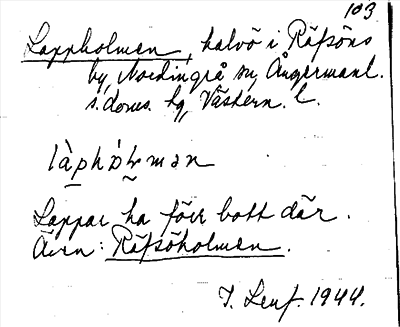 103
Lappholmen, halvö i Räfsöns
by, Nordingrå sn, Ångermanl.
s. doms. hg, Västern. l.
Lappar ha förr bott där.
Även: Räfsöholmen.
I. Lenf. 1944.